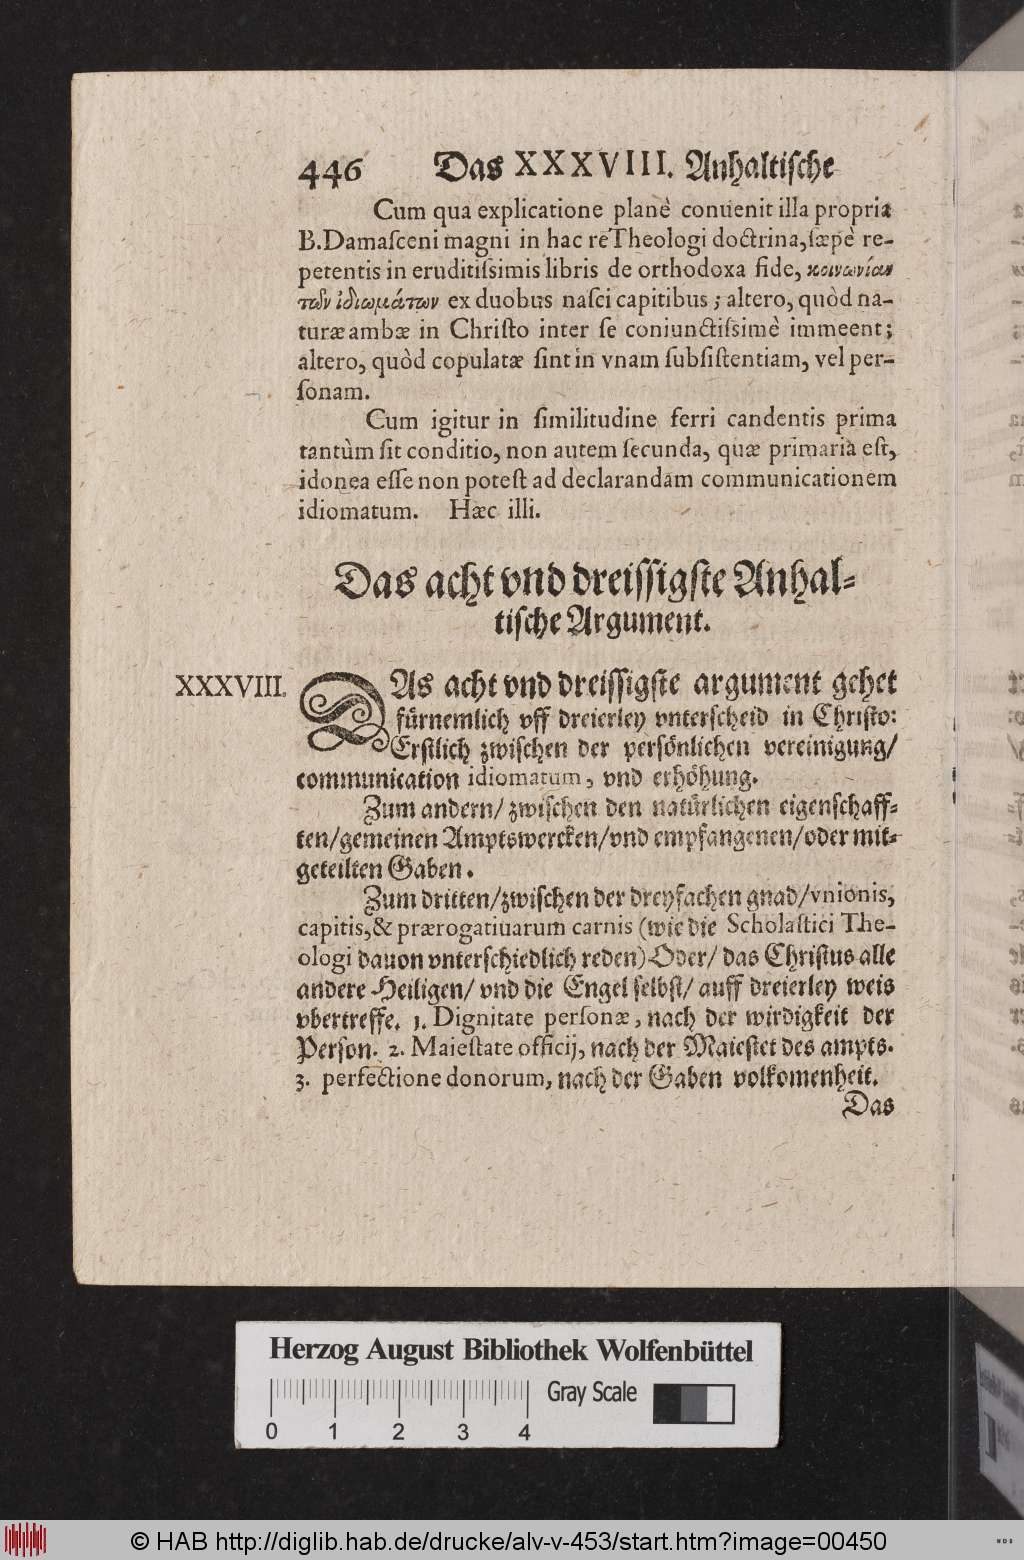 446 Das XXXVIII. Anhaltische
Cum qua explicatione planè conuenit illa propria
B. Damaſceni magni in hac re Theologi doctrina, ſæpè re-
petentis in eruditiſsimis libris de orthodoxa fide, κοινωνίαν
τῶν ἰδιωμάτων ex duobus naſci capitibus; altero, quòd na-
turæ ambæ in Chriſto inter ſe coniunctiſsimè immeent;
altero, quòd copulatæ ſint in vnam ſubſiſtentiam, vel per-
ſonam.
Cum igitur in ſimilitudine ferri candentis prima
tantùm ſit conditio, non autem ſecunda, quæ primaria eſt,
idonea eſſe non poteſt ad declarandam communicationem
idiomatum. Hæc illi.
Das acht vnd dreiſſigſte Anhal-
tiſche Argument.
XXXVIII.
DAs acht vnd dreiſſigſte argument gehet
fürnemlich vff dreierley vnterſcheid in Chriſto:
Erſtlich zwiſchen der perſönlichen vereinigung/
communication idiomatum, vnd erhöhung.
Zum andern/ zwiſchen den natürlichen eigenſchaff-
ten/gemeinen Amptswercken/vnd empfangenen/oder mit-
geteilten Gaben.
Zum dritten/zwiſchen der dreyfachen gnad/vnionis,
capitis, & prærogatiuarum carnis (wie die Scholaſtici The-
ologi dauon vnterſchiedlich reden) Oder/ das Chriſtus alle
andere Heiligen/ vnd die Engel ſelbſt/ auff dreierley weis
vbertreffe. 1. Dignitate perſonæ, nach der wirdigkeit der
Perſon. 2. Maieſtate officij, nach der Maieſtet des ampts.
3. perfectione donorum, nach der Gaben volkomenheit.
Das
Herzog August Bibliothek Wolfenbüttel
Gray Scale
0 1 2 3 4
© HAB http://diglib.hab.de/drucke/alv-v-453/start.htm?image=00450